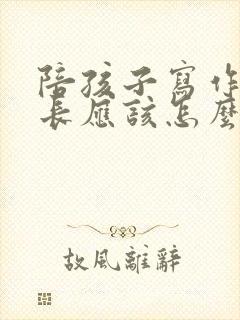 陪孩子寫作
長應該怎麼
故風離辭